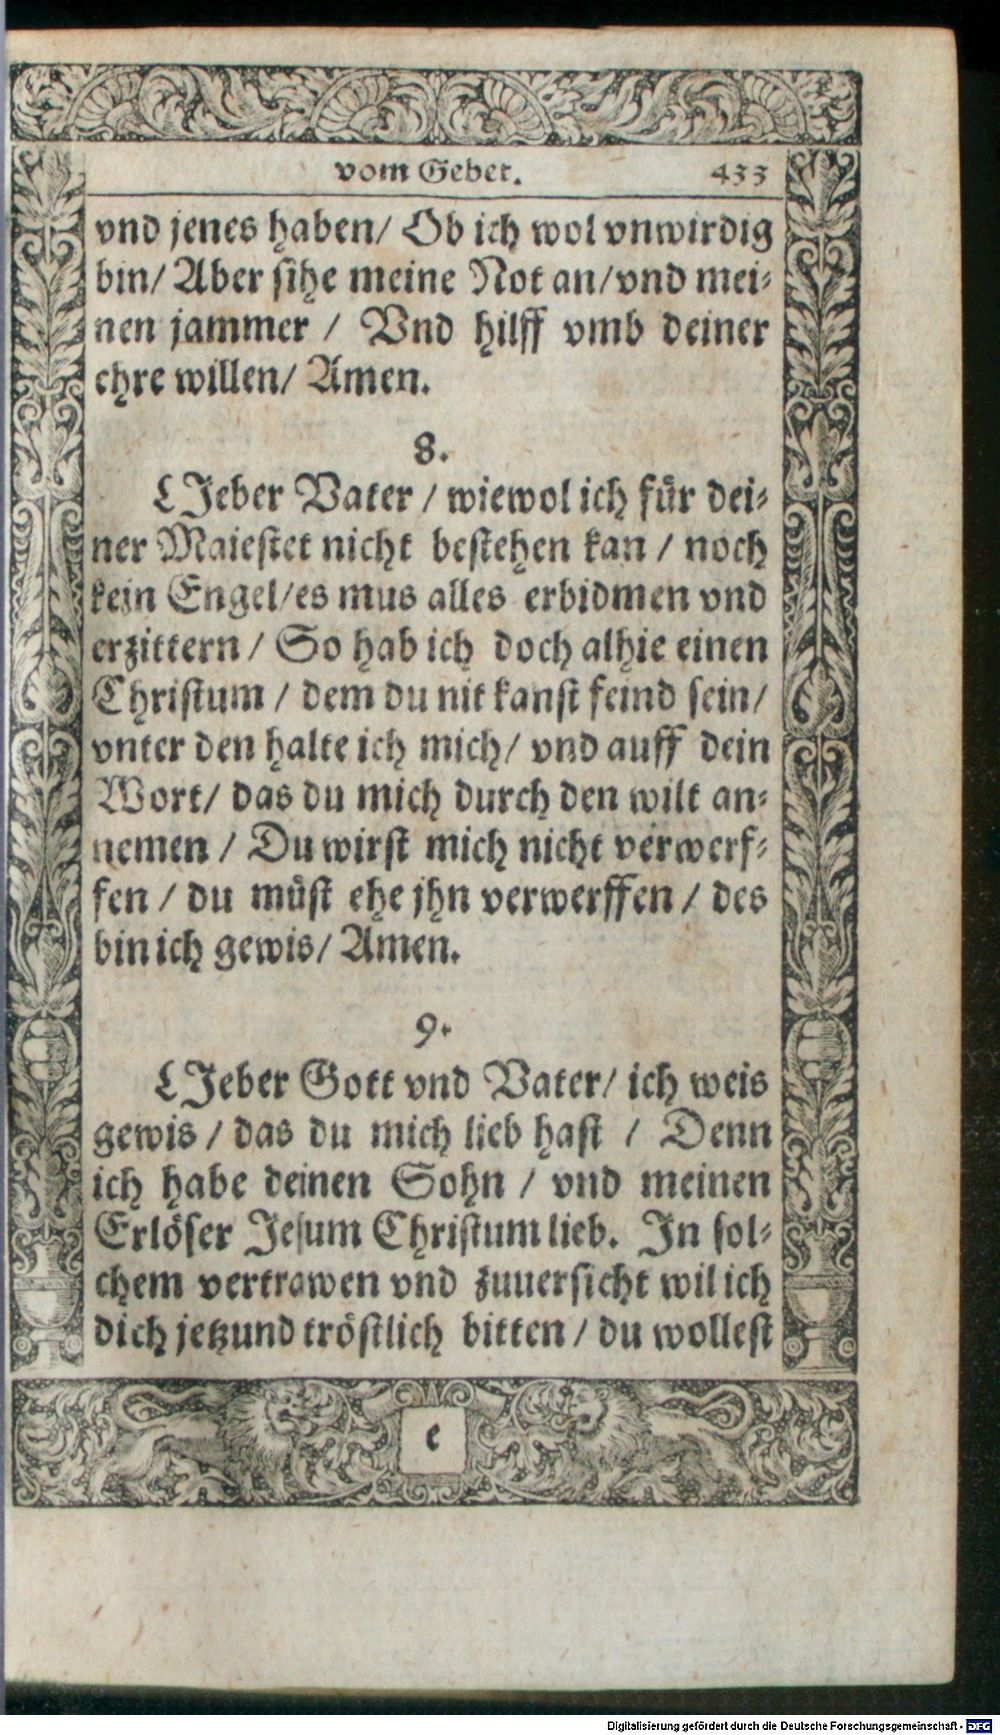 vom Gebet. 433
vnd jenes haben/ Ob ich wol vnwirdig
bin/ Aber sihe meine Not an/vnd mei⸗
nen jammer / Vnd hilff vmb deiner
ehre willen/ Amen.
8.
LJeber Vater / wiewol ich für dei⸗
ner Maiestet nicht bestehen kan / noch
kein Engel/es mus alles erbidmen vnd
erzittern / So hab ich doch alhie einen
Christum / dem du nit kanst feind sein/
vnter den halte ich mich/ vnd auff dein
Wort/ das du mich durch den wilt an⸗
nemen / Du wirst mich nicht verwerf⸗
fen / du müst ehe jhn verwerffen / des
bin ich gewis/ Amen.
9.
LJeber Gott vnd Vater/ ich weis
gewis / das du mich lieb hast / Denn
ich habe deinen Sohn / vnd meinen
Erlöser Jesum Christum lieb. In sol⸗
chem vertrawen vnd zuuersicht wil ich
dich jetzund tröstlich bitten / du wollest
e
Digitalisierung gefördert durch die Deutsche Forschungsgemeinschaft - DFG